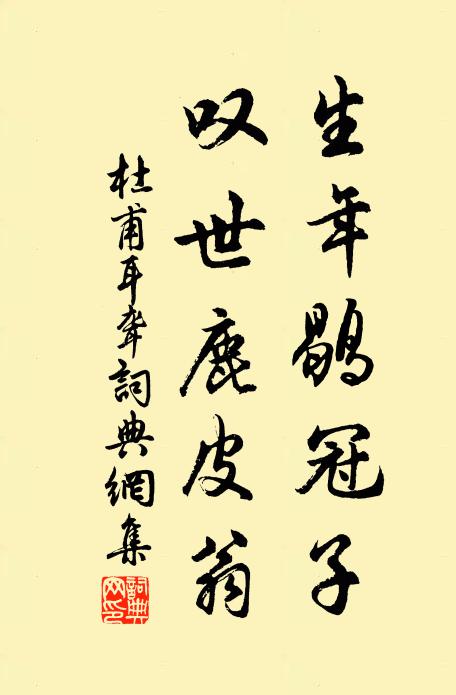 生年鶡冠子
叹世鹿皮翁
杜甫耳聋詞典網集
詞典网印